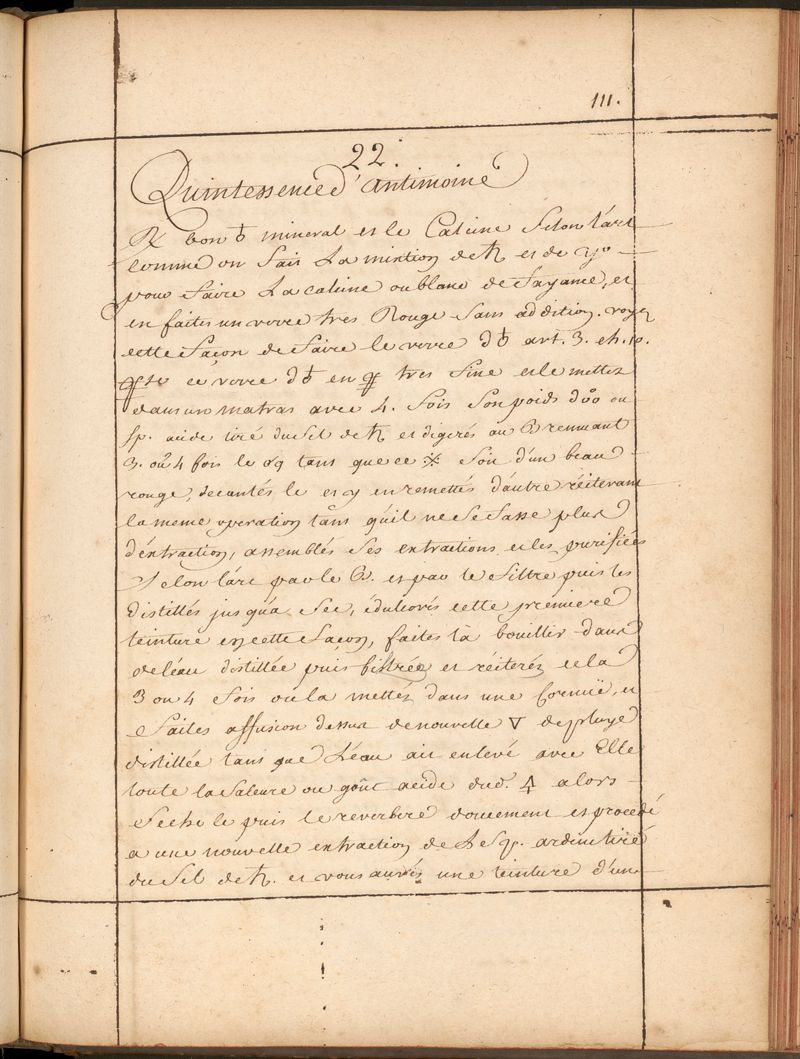 111.
22.
Quintessence d'antimoine
℞ bon ♁ mineral et le Calcine Selon l'art
comme on fait La mixtion de ♄ et de
pour faire La calcine ou blanc de fayance, et
en faites un verre tres Rouge Sans addition. voyez
cette façon de faire le verre d ♁ art. 3. ch. 10.
ce verre d ♁ en tres fine et le mettez
dans un matras avec 4. fois son poids ou
sp. acide tiré du Sel de ♄ et digerés au B remuant
3. ou 4 fois le tant que ce Soit d'un beau
rouge, decantés le et y en remettés d'autre réiterant
la meme operation tant qu'il ne se fasse plus
d'éxtraction, assemblés Ses extractions et les purifiées
Selon l'art par le B. et par le filtre puis les
distillés jusqu'a Sec, édulcorés cette premiere
teinture en cette façon, faites la bouillir dans
de l'éau distillée puis filtrée et réiterés cela
3 ou 4 fois ou la mettés dans une Cornuë, et
faites affusion dessus de nouvelle ▽ de pluye
distillée tant que l'éau ait enlevé avec Elle
toute la Saleure ou goût acide dud. alors
Seche le puis le reverbere doucement et procedé
a une nouvelle extraction de L'esp. ardent tiré
du Sel de ♄. et vous aurés une teinture d'un